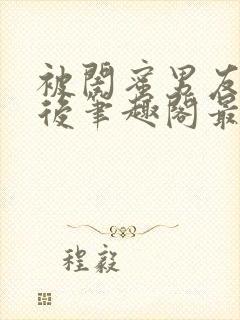 被閤蜜男友
後筆趣閣最
程毅